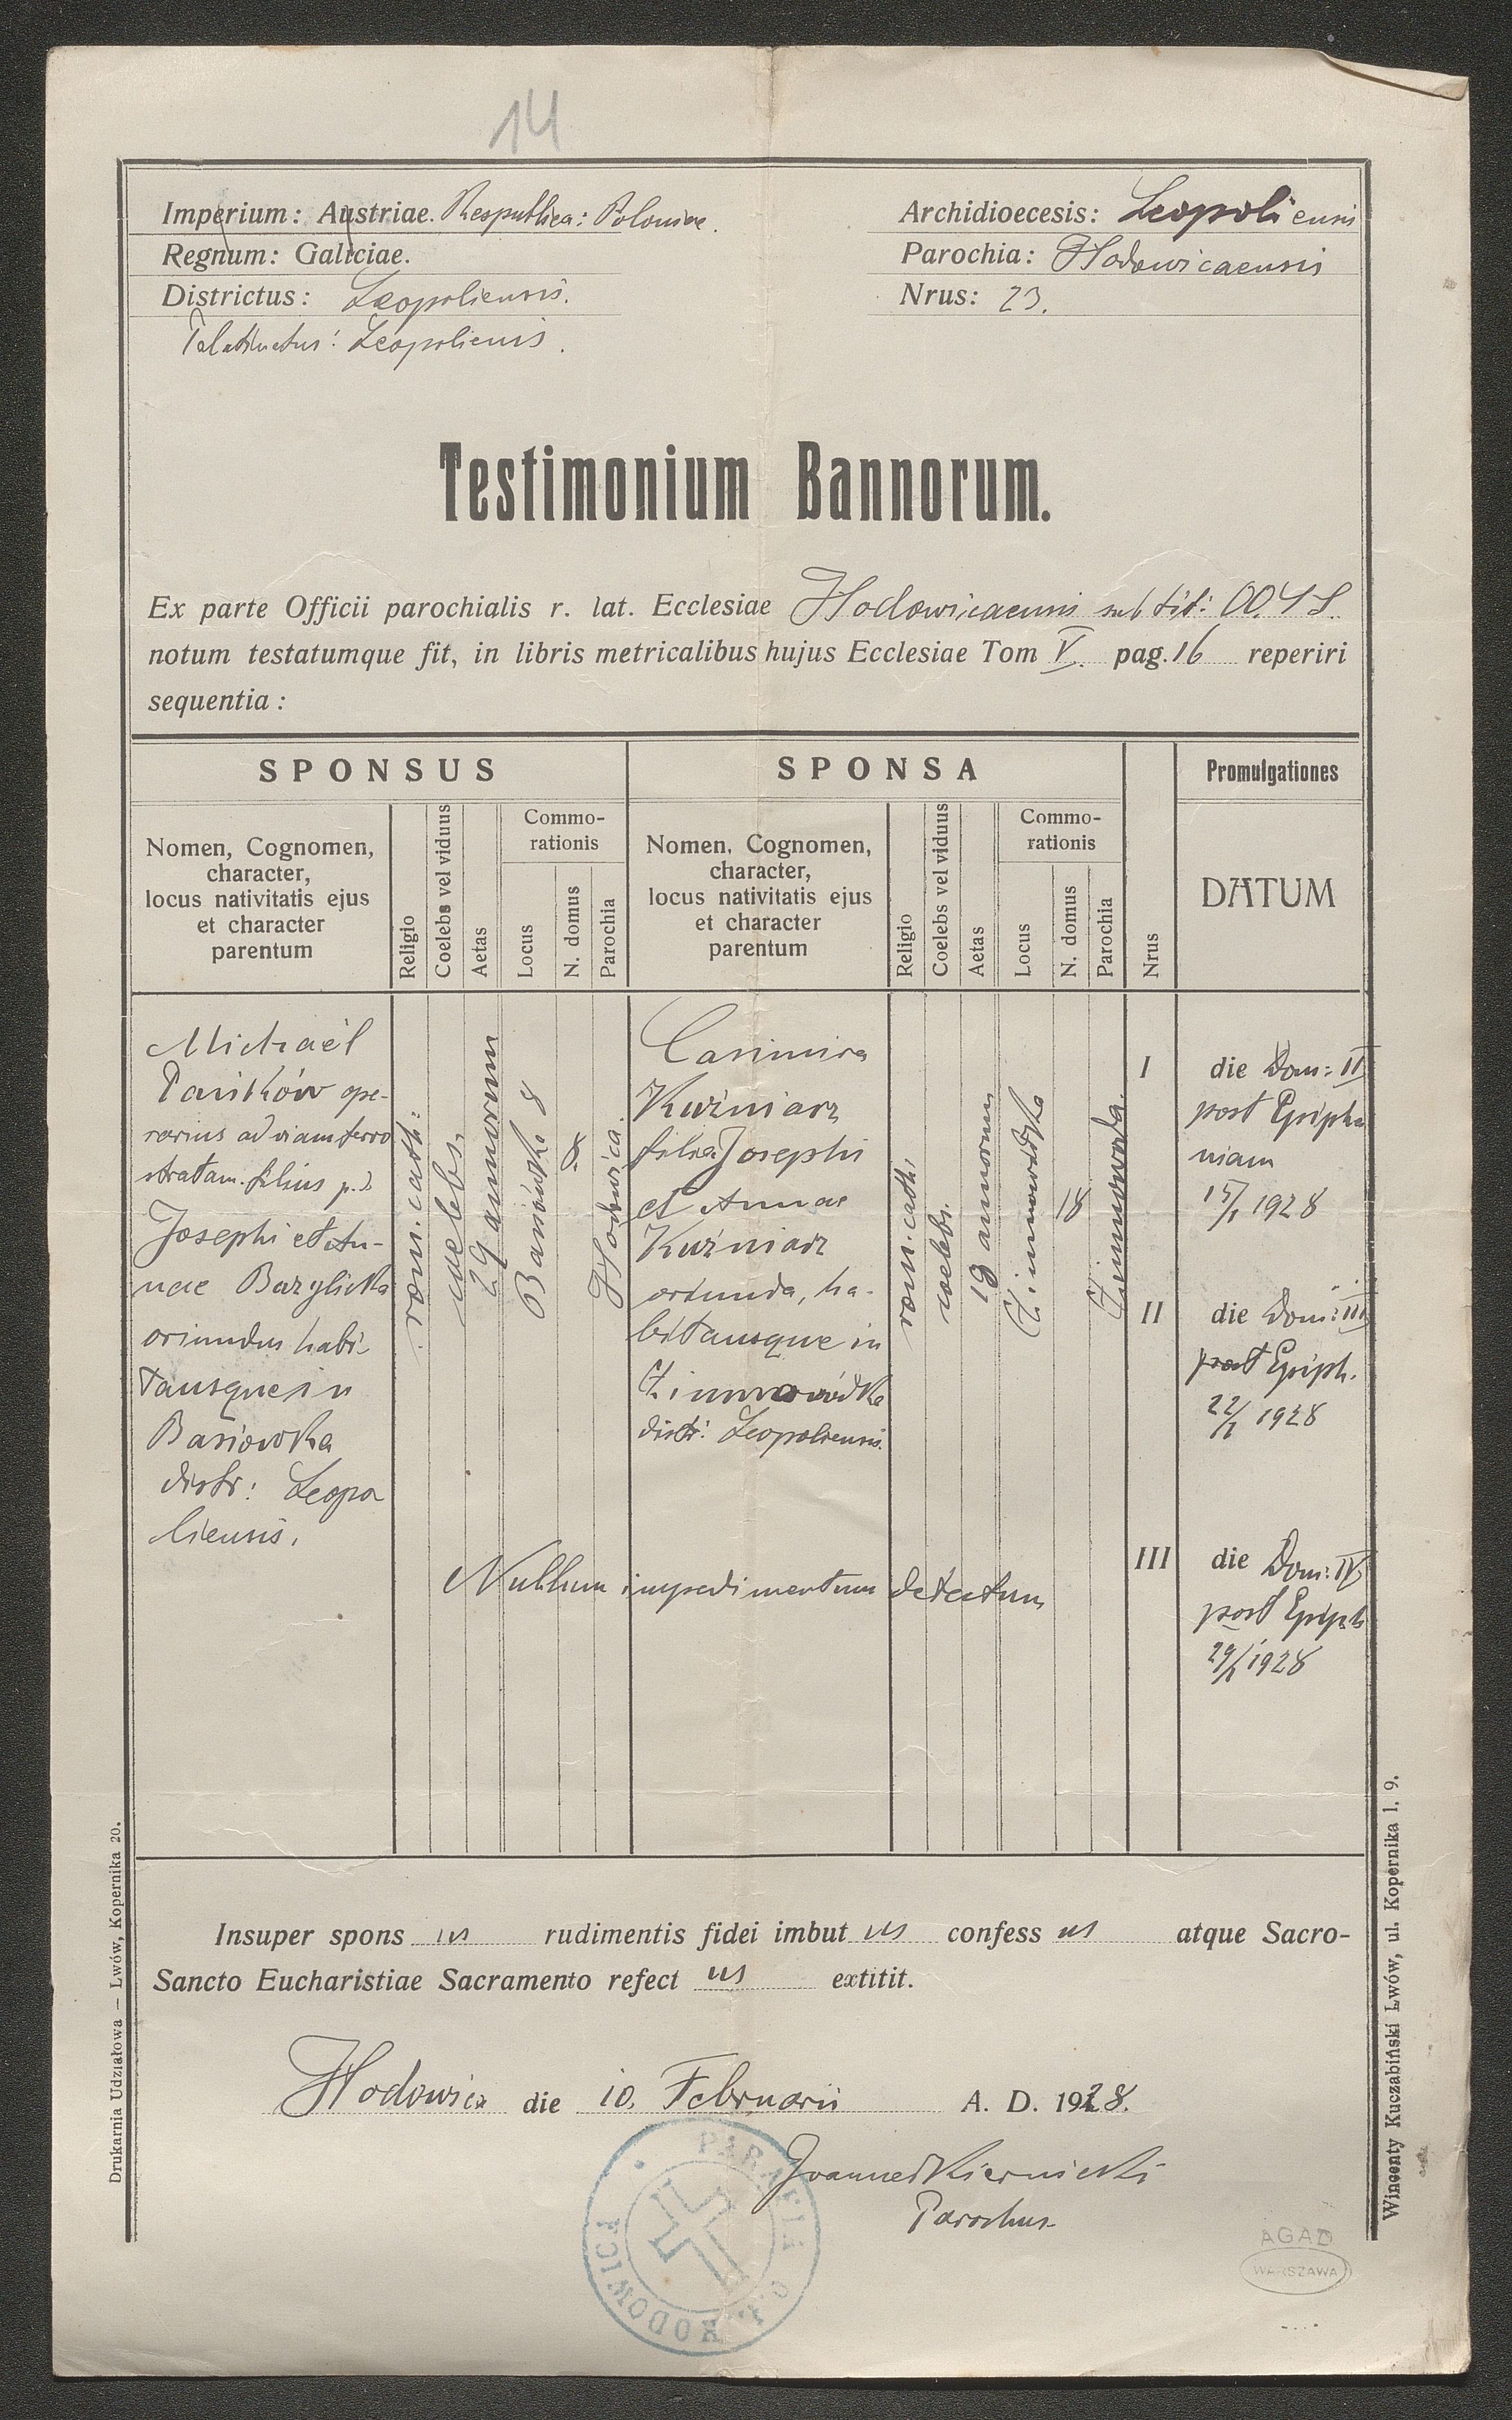 14
Imperium: Austriae. Respublica: Poloniae.
Regnum: Galiciae.
Districtus: Leopoliensis.
Palatinatus: Leopoliensis.
Archidioecesis: Leopoliensis
Parochia: Hodowicaensis
Nrus: 23.
Testimonium Bannorum.
Ex parte Officii parochialis r. lat. Ecclesiae Hodowicaensis sub tit:
notum testatumque fit, in libris metricalibus hujus Ecclesiae Tom V. pag. 16 reperiri
sequentia:
SPONSUS
Nomen, Cognomen,
character,
locus nativitatis ejus
et character
parentum
Religio
Coelebs vel viduus
Aetas
Commo-
rationis
Locus
N. domus
Parochia
SPONSA
Nomen, Cognomen,
character,
locus nativitatis ejus
et character
parentum
Religio
Coelebs vel viduus
Aetas
Commo-
rationis
Locus
N. domus
Parochia
Nrus
Promulgationes
DATUM
Michaël
ope-
rarius ad viam ferro
stratam. filius
Josephi et An-
nae Bazylicka
oriundus habi-
tansque in
Basiówka
distr: Leopo
liensis.
rom. cath:
coelebs.
29 annorum
Basiówka
8.
Hodowica.
Casimira
Kuźniarz
filia Josephi
et Annae
Kuźniarz
oriunda, ha-
bitansque in
Zimnowódka
distr: Leopoliensis.
rom. cath.
coelebs.
19 annorum
Zimnowódka
18
Zimnawoda.
I
die Dom: II
post Epipha
niam
15/1 1928
II
die Dom: III
post Epiph.
22/1 1928
III
die Dom: IV
post Epiph
29/1 1928
Nullum impedimentum detectum
Insuper spons us rudimentis fidei imbut us confess us atque Sacro-
Sancto Eucharistiae Sacramento refect us extitit.
Hodowica die 10. Februarii A. D. 1928.
Joannes Kiernicki
Parochus
PARAFIA O. Ł. HODOWICA
AGAD
WARSZAWA
Drukarnia Udziałowa — Lwów, Kopernika 20.
Wincenty Kuczabiński Lwów, ul. Kopernika l. 9.